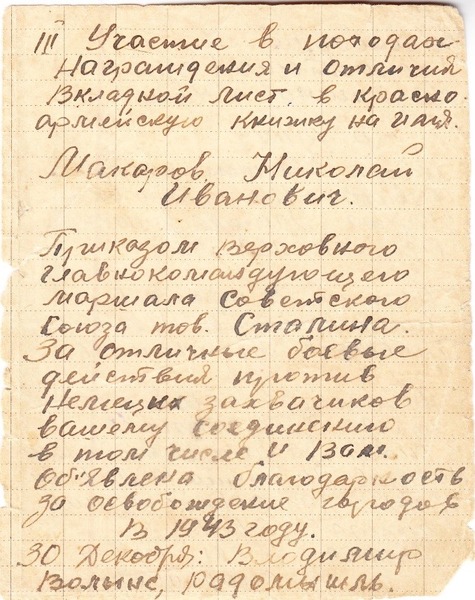 III Участие в походах
Награждения и отличия
Вкладной лист в красно
армейскую книжку на имя.
Макаров Николай
Иванович.
Приказом Верховного
главнокомандующего
маршала Советского
Союза тов. Сталина.
За отличные боевые
действия против
Немецких захвачиков
вашему соединению
в том числе и Вам.
Об'явлена благодарность
за освобождение городов
В 1943 году.
30 Декабря: Владимир
Волынс, радомышль.